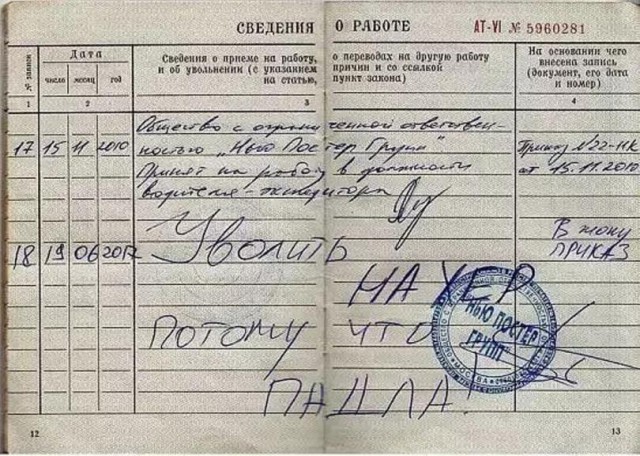 СВЕДЕНИЯ О РАБОТЕ
АТ-VI № 5960281
№ записи
Дата
число месяц год
Сведения о приеме на работу, о переводах на другую работу
и об увольнении (с указанием причин и со ссылкой
на статью, пункт закона)
На основании чего
внесена запись
(документ, его дата
и номер)
1 2 3 4
Общество с ограниченной ответствен-
ностью "Нью Постер Групп"
17 15 11 2010 Принят на работу в должности
водителя-экспедитора
Приказ №22-НК
от 15.11.2010
18 19 06 2012 УВОЛИТЬ
В жопу
ПРИКАЗ
НАХЕР
ПОТОМУ ЧТО
ПАДЛА!
НЬЮ ПОСТЕР
ГРУПП
МОСКВА
12 13